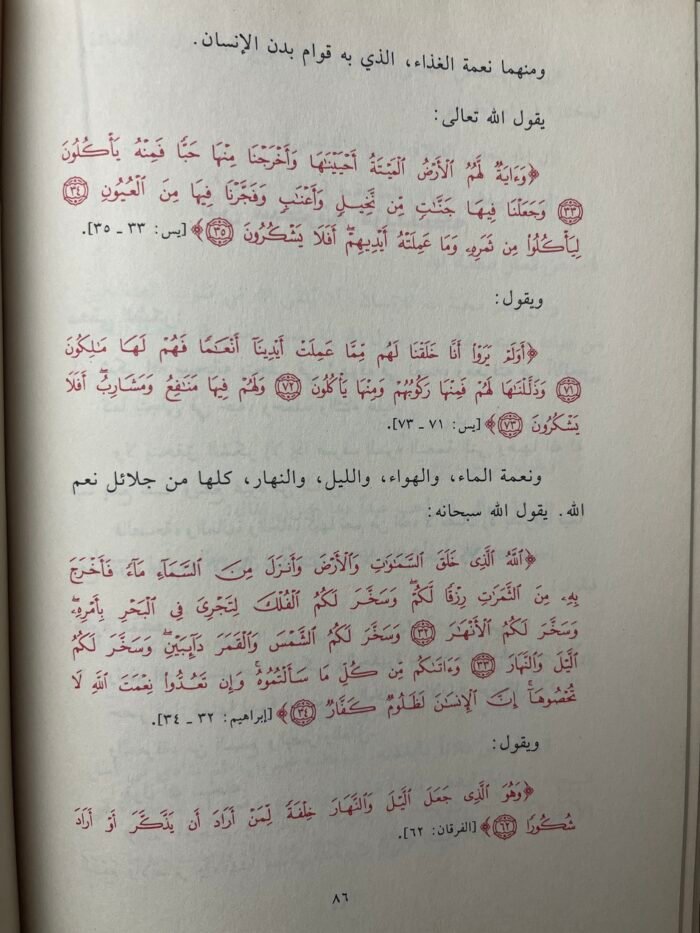 ومنهما نعمة الغذاء، الذي به قوام بدن الإنسان.
يقول الله تعالى:
﴿وَءَايَةٌ لَّهُمُ ٱلْأَرْضُ ٱلْمَيْتَةُ أَحْيَيْنَٰهَا وَأَخْرَجْنَا مِنْهَا حَبًّا فَمِنْهُ يَأْكُلُونَ
٣٣ وَجَعَلْنَا فِيهَا جَنَّٰتٍ مِّن نَّخِيلٍ وَأَعْنَٰبٍ وَفَجَّرْنَا فِيهَا مِنَ ٱلْعُيُونِ ٣٤
لِيَأْكُلُوا۟ مِن ثَمَرِهِۦ وَمَا عَمِلَتْهُ أَيْدِيهِمْ ۖ أَفَلَا يَشْكُرُونَ ٣٥﴾ [يس: ٣٣ ـ ٣٥].
ويقول:
﴿أَوَلَمْ يَرَوْا۟ أَنَّا خَلَقْنَا لَهُم مِّمَّا عَمِلَتْ أَيْدِينَآ أَنْعَٰمًا فَهُمْ لَهَا مَٰلِكُونَ
٧١ وَذَلَّلْنَٰهَا لَهُمْ فَمِنْهَا رَكُوبُهُمْ وَمِنْهَا يَأْكُلُونَ ٧٢ وَلَهُمْ فِيهَا مَنَٰفِعُ وَمَشَارِبُ ۖ أَفَلَا
يَشْكُرُونَ ٧٣﴾ [يس: ٧١ ـ ٧٣].
ونعمة الماء، والهواء، والليل، والنهار، كلها من جلائل نعم
الله. يقول الله سبحانه:
﴿ٱللَّهُ ٱلَّذِى خَلَقَ ٱلسَّمَٰوَٰتِ وَٱلْأَرْضَ وَأَنزَلَ مِنَ ٱلسَّمَآءِ مَآءً فَأَخْرَجَ
بِهِۦ مِنَ ٱلثَّمَرَٰتِ رِزْقًا لَّكُمْ ۖ وَسَخَّرَ لَكُمُ ٱلْفُلْكَ لِتَجْرِىَ فِى ٱلْبَحْرِ بِأَمْرِهِۦ ۖ
وَسَخَّرَ لَكُمُ ٱلْأَنْهَٰرَ ٣٢ وَسَخَّرَ لَكُمُ ٱلشَّمْسَ وَٱلْقَمَرَ دَآئِبَيْنِ ۖ وَسَخَّرَ لَكُمُ
ٱلَّيْلَ وَٱلنَّهَارَ ٣٣ وَءَاتَىٰكُم مِّن كُلِّ مَا سَأَلْتُمُوهُ ۚ وَإِن تَعُدُّوا۟ نِعْمَتَ ٱللَّهِ لَا
تُحْصُوهَآ ۗ إِنَّ ٱلْإِنسَٰنَ لَظَلُومٌ كَفَّارٌ ٣٤﴾ [إبراهيم: ٣٢ ـ ٣٤].
ويقول:
﴿وَهُوَ ٱلَّذِى جَعَلَ ٱلَّيْلَ وَٱلنَّهَارَ خِلْفَةً لِّمَنْ أَرَادَ أَن يَذَّكَّرَ أَوْ أَرَادَ
شُكُورًا ٦٢﴾ [الفرقان: ٦٢].
٨٦